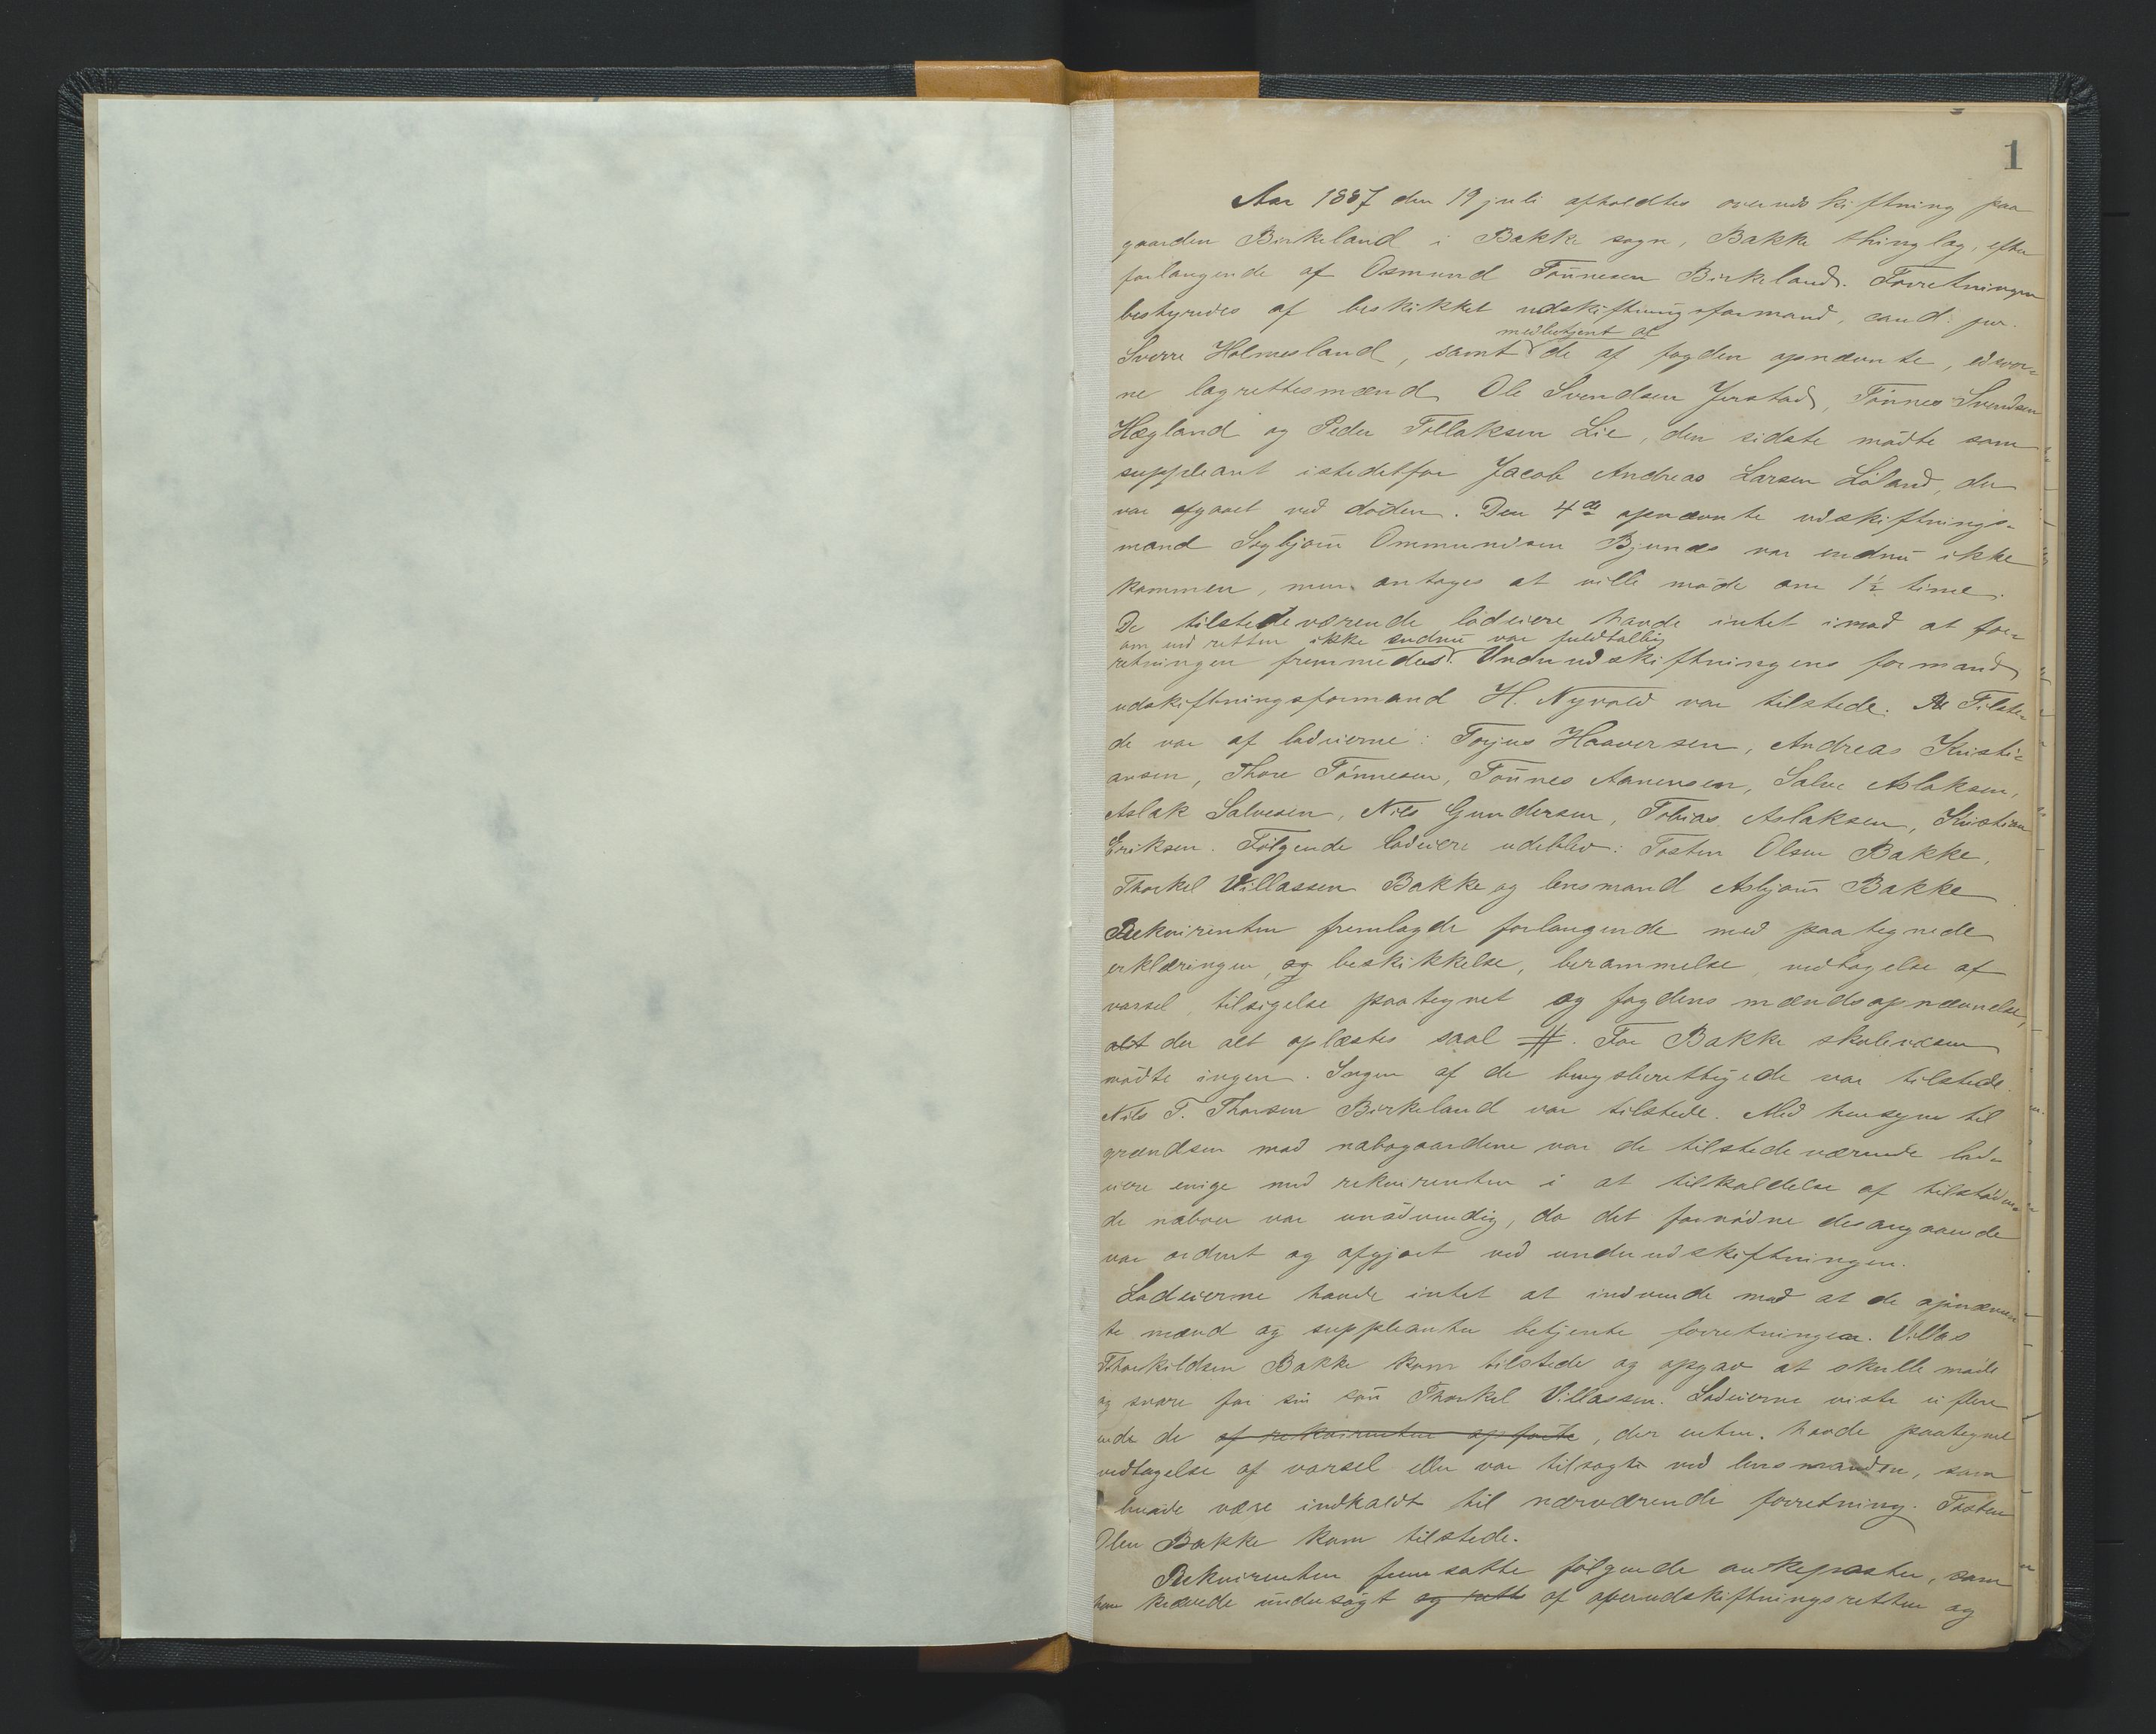 1
Aar 1887 den 19 juli afholdtes overudskiftning paa
gaarden Birkeland i Bakke sogn, Bakke thinglag, efter
forlangende af Osmund Tönnesen Birkeland. Forretningen
bestyredes af beskikket udskiftningsformand, cand. jur.
medbetjent af
Sverre Holmesland, samt de af fogden opnævnte, edsvor-
ne lagrettesmænd Ole Svendsen Jerstad, Tönnes Svendsen
Hægland og Peder Tollaksen Lie, den sidste mödte som
suppleant istedetfor Jacob Andreas Larsen Löland, der
var afgaaet ved döden. Den 4de opnævnte udskiftnings-
mand Sigbjörn Ommundsen Bjunes var endnu ikke
kommen, men antages at ville möde om 1½ time.
De tilstedeværende lodeiere havde intet imod at for-
om end retten ikke endnu var fuldtallig
retningen fremmedes. Underudskiftningens formand
udskiftningsformand H. Nyvold var tilstede. Tilste-
de var af lodeierne: Torjus Haaversen, Andreas Kristi-
ansen, Thore Tönnesen, Tönnes Aanensen, Salve Aslaksen,
Aslak Salvesen, Nils Gundersen, Tobias Aslaksen, Kristian
Eriksen. Fölgende lodeiere udeblev: Tosten Olsen Bakke,
Thorkel Villassen Bakke og lensmand Asbjörn Bakke.
Rekvirenten fremlagde forlangende med paategnede
erklæringer, og beskikkelse, berammelse, vedtagelse af
varsel, tilsigelse paategnet og fogdens mændsopnævnelse,
alt der alt oplæstes saal #. For Bakke skolevæsen
mödte ingen. Ingen af de brugsberettigede var tilstede.
Nils T. Thorsen Birkeland var tilstede. Med hensyn til
grændsen mod nabogaardene var de tilstedeværende lod-
eiere enige med rekvirenten i at tilkaldelse af tilstöden-
de naboer var unödvendig, da det fornödne desangaaende
var ordnet og afgjort ved underudskiftningen.
Lodeierne havde intet at indvende mod at de opnævn-
te mænd og suppleanter betjente forretningen. Villas
Thorkildsen Bakke kom tilstede og opgav at skulle möde
og svare for sin sön Thorkel Villassen. Lodeierne viste ei flere
end de af rekvirenten opförte, der enten havde paategnet
vedtagelse af varsel eller var tilsagte ved lensmanden, som
burde være indkaldt til nærværende forretning. Tosten
Olsen Bakke kom tilstede.
Rekvirenten fremsatte fölgende ankeposter, som
han krævede undersögt og rettet af overudskiftningsretten og